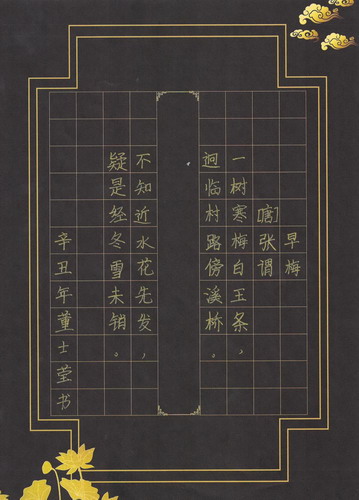 早梅
[唐]张谓
一树寒梅白玉条，
迥临村路傍溪桥。
不知近水花先发，
疑是经冬雪未销。
辛丑年董士莹书